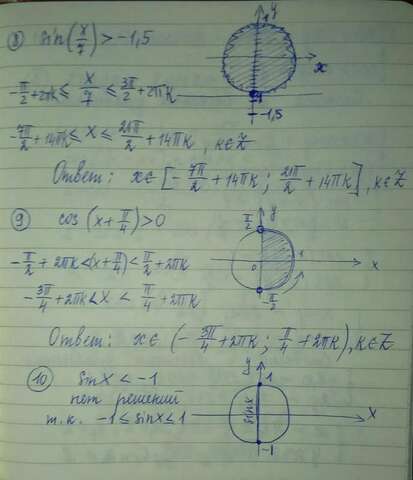 8) sin(x/7) > -1,5
y
1
x
-1
-1,5
-π/2 + 2πk ≤ x/7 ≤ 3π/2 + 2πk
-7π/2 + 14πk ≤ x ≤ 21π/2 + 14πk, k∈Z
Ответ: x∈[-7π/2 + 14πk; 21π/2 + 14πk], k∈Z
9) cos(x + π/4) > 0
π/2
y
0
1
x
-π/2
-π/2 + 2πk < (x + π/4) < π/2 + 2πk
-3π/4 + 2πk < x < π/4 + 2πk
Ответ: x∈(-3π/4 + 2πk; π/4 + 2πk), k∈Z
10) sinx < -1
нет решений
т.к. -1 ≤ sinx ≤ 1
y
1
sinx
x
-1